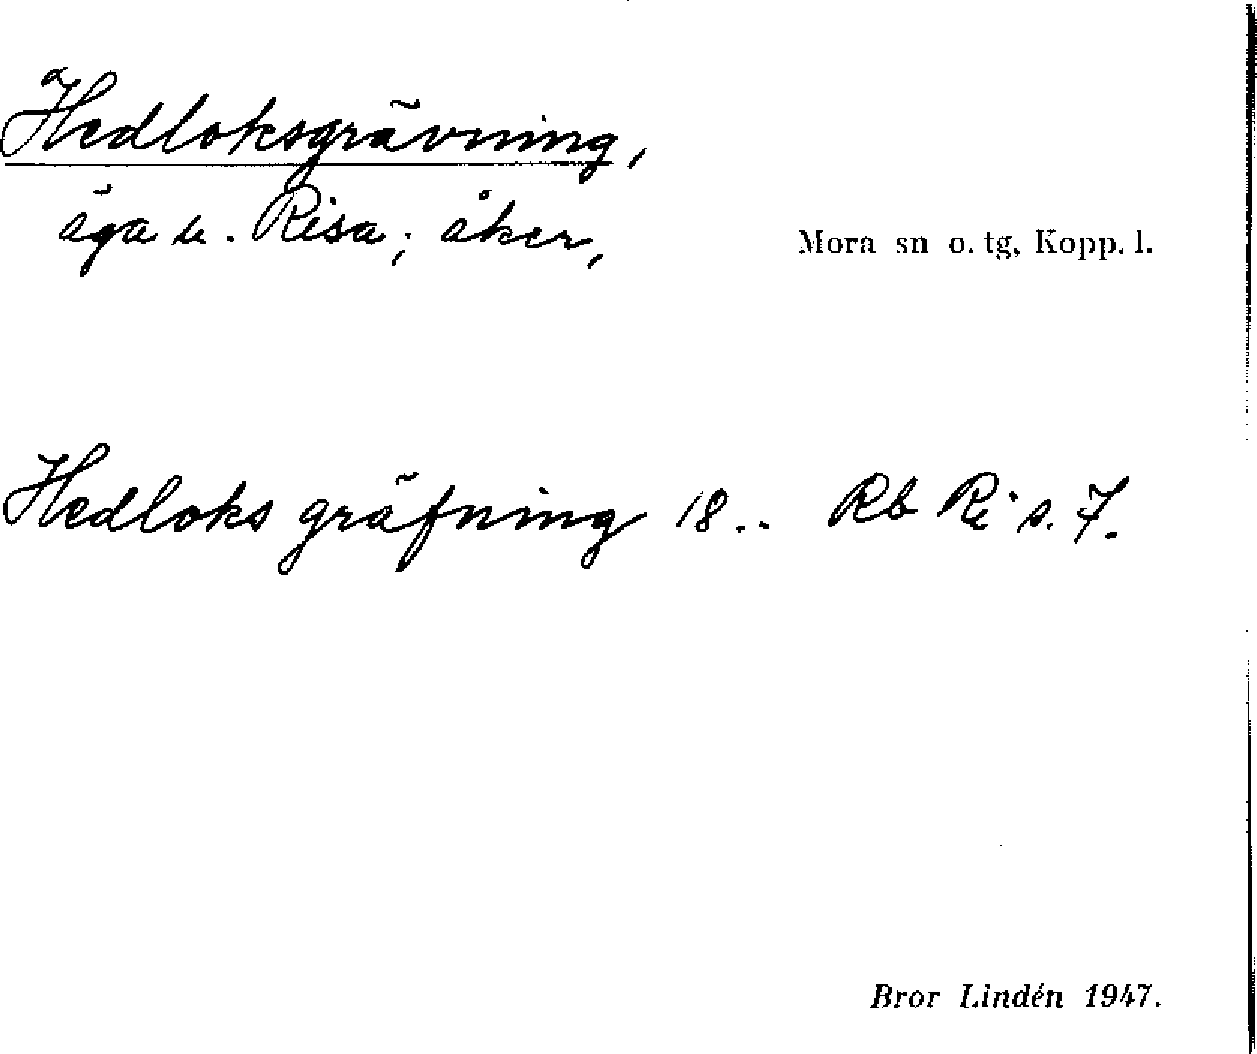 Hedloksgrävning,
äga u. Risa; åker,
Mora sn o. tg, Kopp. l.
Hedloks gräfning 18.. Rb Ri s. 7.
Bror Lindén 1947.